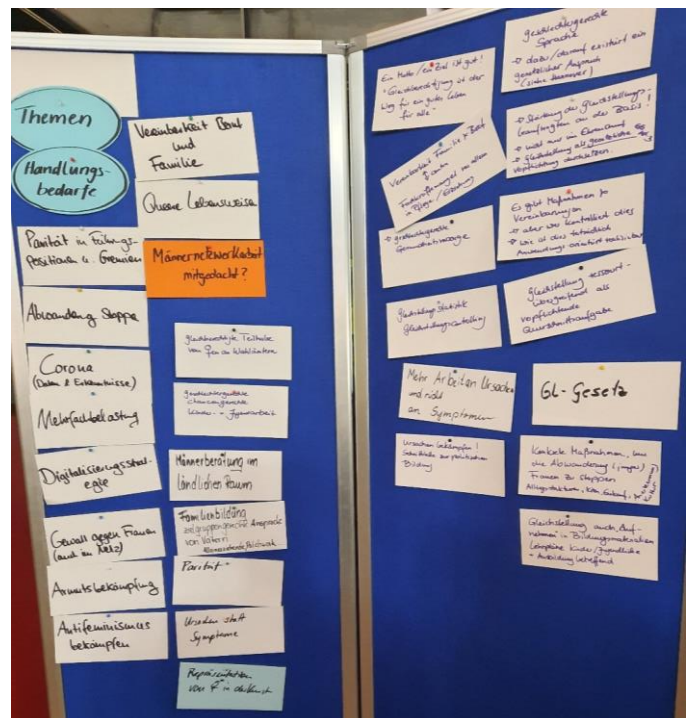 Themen
Handlungs-
bedarfe
Parität in Führungs-
positionen u. Gremien
Abwanderung Stoppen
Corona
(Daten & Erkenntnisse)
Mehrfachbelastung
Digitalisierungsstrat-
egie
Gewalt gegen Frauen
(auch im Netz)
Armutsbekämpfung
Antifeminismus
bekämpfen
Vereinbarkeit Beruf
und
Familie
Queere Lebensweise
Männernetzwerkarbeit
mitgedacht?
gleichberechtigte Teilhabe
von ♀en an Wahlämtern
geschlechtergerechte
chancengerechte
Kinder- + Jugendarbeit
Männerberatung im
ländlichen Raum
Familienbildung
zielgruppengerechte Ansprache
von Vätern
Parität
Ursachen statt
Symptome
Repräsentation
von ♀ in der Kunst
Ein Motto / ein Ziel ist gut!
"Gleichberechtigung ist der
Weg für ein gutes Leben
für alle"
Vereinbarkeit Familie & Beruf
Fachkräftemangel vor allem
in Pflege / Erziehung
→ geschlechtergerechte
Gesundheitsvorsorge
Mehr Arbeit an Ursachen
und nicht
an Symptomen
Ursachen bekämpfen!
politischen
Bildung
geschlechtergerechte
Sprache
→ dazu/darauf existiert ein
gesetzlicher Anspruch
(siehe Hannover)
→ Stärkung der Gleichstellungs-
beauftragten an der Basis!
→ nicht nur im Ehrenamt
→ Gleichstellung als gesetzliche
Verpflichtung durchsetzen.
Es gibt Maßnahmen &
Vereinbarungen
→ aber wer kontrolliert dies
→ wie ist dies tatsächlich
Anwendungs orientiert realisierbar
Gleichstellung ressort-
übergreifend als
verpflichtende
Querschnittsaufgabe
GL-Gesetz
Konkrete Maßnahmen, um
die Abwanderung (junger)
Frauen zu stoppen
Gleichstellung auch Auf-
nehmen in Bildungsmaterialien
Lehrpläne Kinder/Jugendliche
+ Ausbildung betreffend